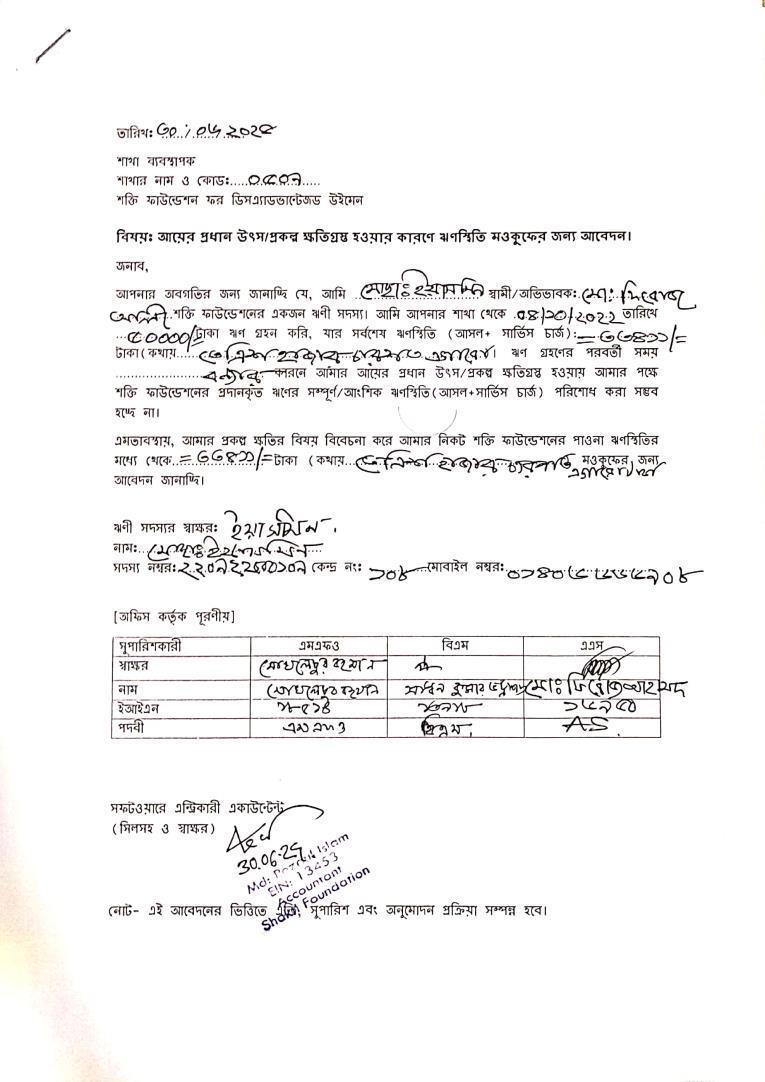 তারিখঃ ৩০/০৬/২০২৫
শাখা ব্যবস্থাপক
শাখার নাম ও কোডঃ.....০৫০৭.....
শক্তি ফাউন্ডেশন ফর ডিসএ্যাডভান্টেজড উইমেন
বিষয়ঃ আয়ের প্রধান উৎস/প্রকল্প ক্ষতিগ্রস্ত হওয়ার কারণে ঋণস্থিতি মওকুফের জন্য আবেদন।
জনাব,
আপনার অবগতির জন্য জানাচ্ছি যে, আমি মোছাঃ ইয়াসমিন স্বামী/অভিভাবকঃ মোঃ ফিরোজ
আলী শক্তি ফাউন্ডেশনের একজন ঋণী সদস্য। আমি আপনার শাখা থেকে ০৪/১০/২০২২ তারিখে
৫০০০০/টাকা ঋণ গ্রহন করি, যার সর্বশেষ ঋণস্থিতি (আসল+ সার্ভিস চার্জ):=৩৩৪১১/=
টাকা(কথায়.... তেত্রিশ হাজার চারশত এগারো। ঋণ গ্রহণের পরবর্তী সময়
বন্যার কারনে আমার আয়ের প্রধান উৎস/প্রকল্প ক্ষতিগ্রস্ত হওয়ায় আমার পক্ষে
শক্তি ফাউন্ডেশনের প্রদানকৃত ঋণের সম্পূর্ণ/আংশিক ঋণস্থিতি(আসল+সার্ভিস চার্জ) পরিশোধ করা সম্ভব
হচ্ছে না।
এমতাবস্থায়, আমার প্রকল্প ক্ষতির বিষয় বিবেচনা করে আমার নিকট শক্তি ফাউন্ডেশনের পাওনা ঋণস্থিতির
মধ্যে থেকে..=৩৩৪১১/=টাকা (কথায়... তেত্রিশ হাজার চারশত এগারো মওকুফের জন্য
আবেদন জানাচ্ছি।
ঋণী সদস্যর স্বাক্ষরঃ ইয়াসমিন।
নামঃ..মোছাঃ ইয়াসমিন...
সদস্য নম্বরঃ কেন্দ্র নং: ১০৮ মোবাইল নম্বরঃ
[অফিস কর্তৃক পূরণীয়]
সুপারিশকারী এমএফও বিএম এএস
স্বাক্ষর মোখলেছুর রহমান
নাম মোখলেছুর রহমান
ইআইএন
পদবী এমএফও বিএম. A.S.
সফটওয়ারে এন্ট্রিকারী একাউন্টেন্ট
(সিলসহ ও স্বাক্ষর)
30.06.25
Md: Rezaul Islam
EIN: 13453
Accountant
Shakti Foundation
নোট- এই আবেদনের ভিত্তিতে এন্ট্রি, সুপারিশ এবং অনুমোদন প্রক্রিয়া সম্পন্ন হবে।